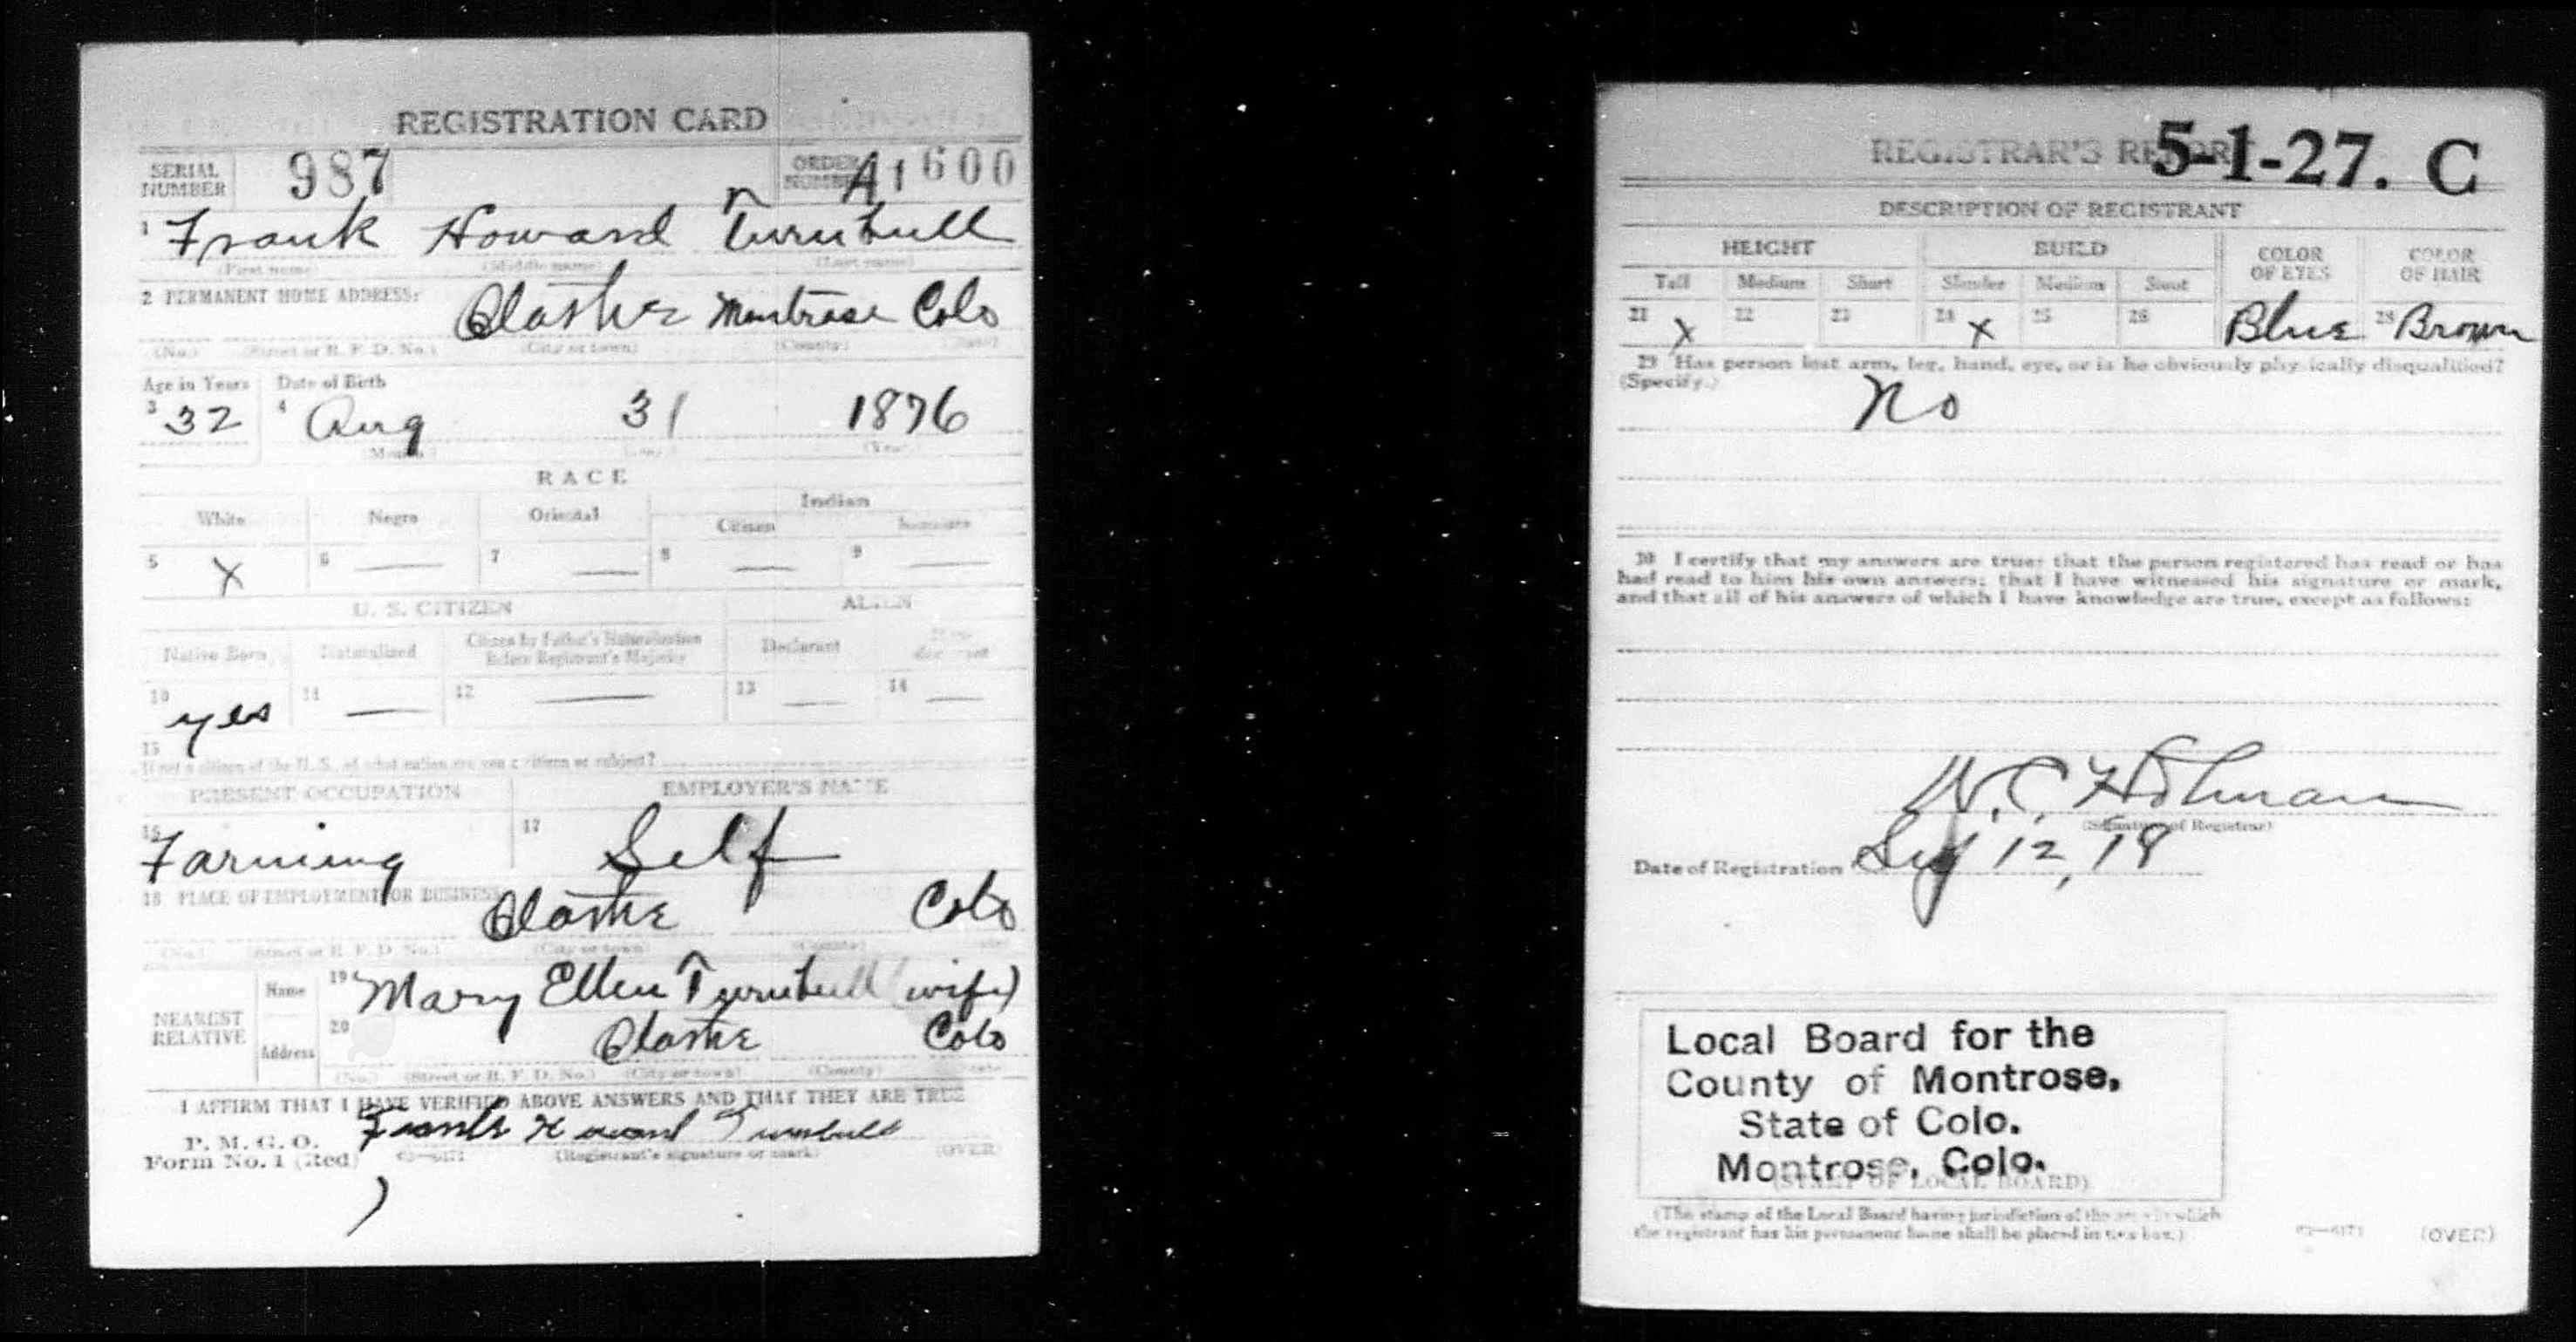 REGISTRATION CARD
SERIAL NUMBER 987 ORDER NUMBER A1600
1 Frank Howard Turnbull
(First name) (Middle name) (Last name)
2 PERMANENT HOME ADDRESS:
Olathe Montrose Colo
(No.) (Street or R. F. D. No.) (City or town) (County) (State)
Age in Years Date of Birth
3 32 4 Aug 31 1876
(Month.) (Day.) (Year.)
RACE
White Negro Oriental Indian
Citizen
5 X 6 — 7 — 8 — 9 —
U. S. CITIZEN ALIEN
Native Born Naturalized Citizen by Father's Naturalization Before Registrant's Majority Declarant
10 yes 11 — 12 — 13 — 14 —
15
If not a citizen of the U. S., of what nation are you a citizen or subject?
PRESENT OCCUPATION EMPLOYER'S NAME
16 Farming 17 Self
18 PLACE OF EMPLOYMENT OR BUSINESS
Olathe Colo
(No.) (Street or R. F. D. No.) (City or town) (County) (State)
NEAREST RELATIVE
Name 19 Mary Ellen Turnbull (wife)
Address 20 Olathe Colo
(No.) (Street or R. F. D. No.) (City or town) (County) (State)
I AFFIRM THAT I HAVE VERIFIED ABOVE ANSWERS AND THAT THEY ARE TRUE
P. M. G. O.
Form No. 1 (Red) Frank Howard Turnbull
(Registrant's signature or mark) (OVER)
REGISTRAR'S REPORT 5-1-27. C
DESCRIPTION OF REGISTRANT
HEIGHT BUILD COLOR OF EYES COLOR OF HAIR
Tall Medium Short Slender Medium Stout
21 X 22 23 24 X 25 26 Blue 28 Brown
29 Has person lost arm, leg, hand, eye, or is he obviously physically disqualified?
(Specify.)
No
30 I certify that my answers are true; that the person registered has read or has
had read to him his own answers; that I have witnessed his signature or mark,
and that all of his answers of which I have knowledge are true, except as follows:
W. C. Holman
(Signature of Registrar)
Date of Registration Sep 12, 18
Local Board for the
County of Montrose,
State of Colo.
Montrose, Colo.
(STAMP OF LOCAL BOARD)
(The stamp of the Local Board having jurisdiction of the area in which
the registrant has his permanent home shall be placed in this box.)
(OVER)